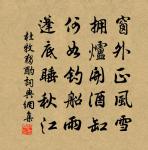 窗外正風雪
擁爐開酒缸
何如釣船雨
蓬底睡秋江
杜牧獨酌詞典網集